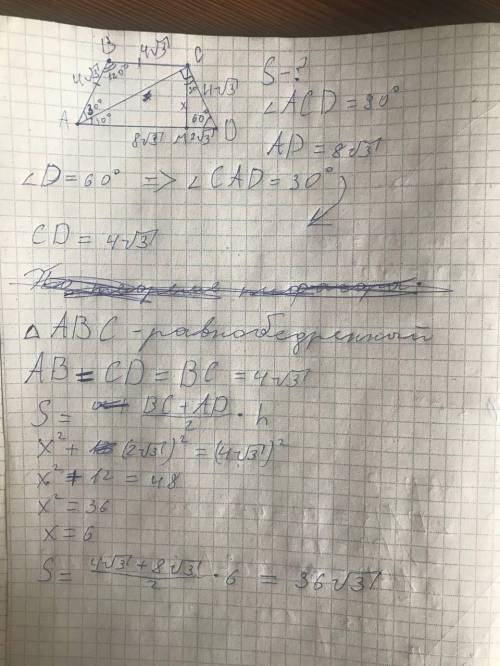 B 4√3 C
4√3 120° 4√3
S - ?
∠ACD = 90°
A 30° 30° x 60 D
8√3 M 2√3
AD = 8√3
∠D = 60° => ∠CAD = 30°
CD = 4√3
△ ABC - равнобедренный
AB = CD = BC = 4√3
S = BC + AD / 2 · h
x² + (2√3)² = (4√3)²
x² + 12 = 48
x² = 36
x = 6
S = 4√3 + 8√3 / 2 · 6 = 36√3